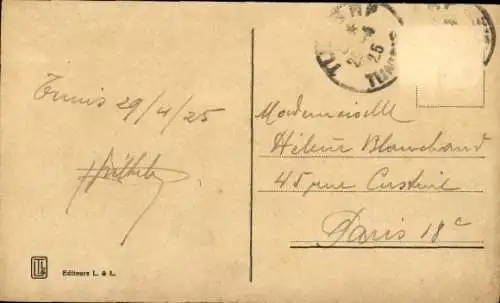 Tunis 29/4/25
Mademoiselle
Hélène Blanchard
45 rue Custine
Paris 18e
TUNIS
25
Editeurs L. & L.